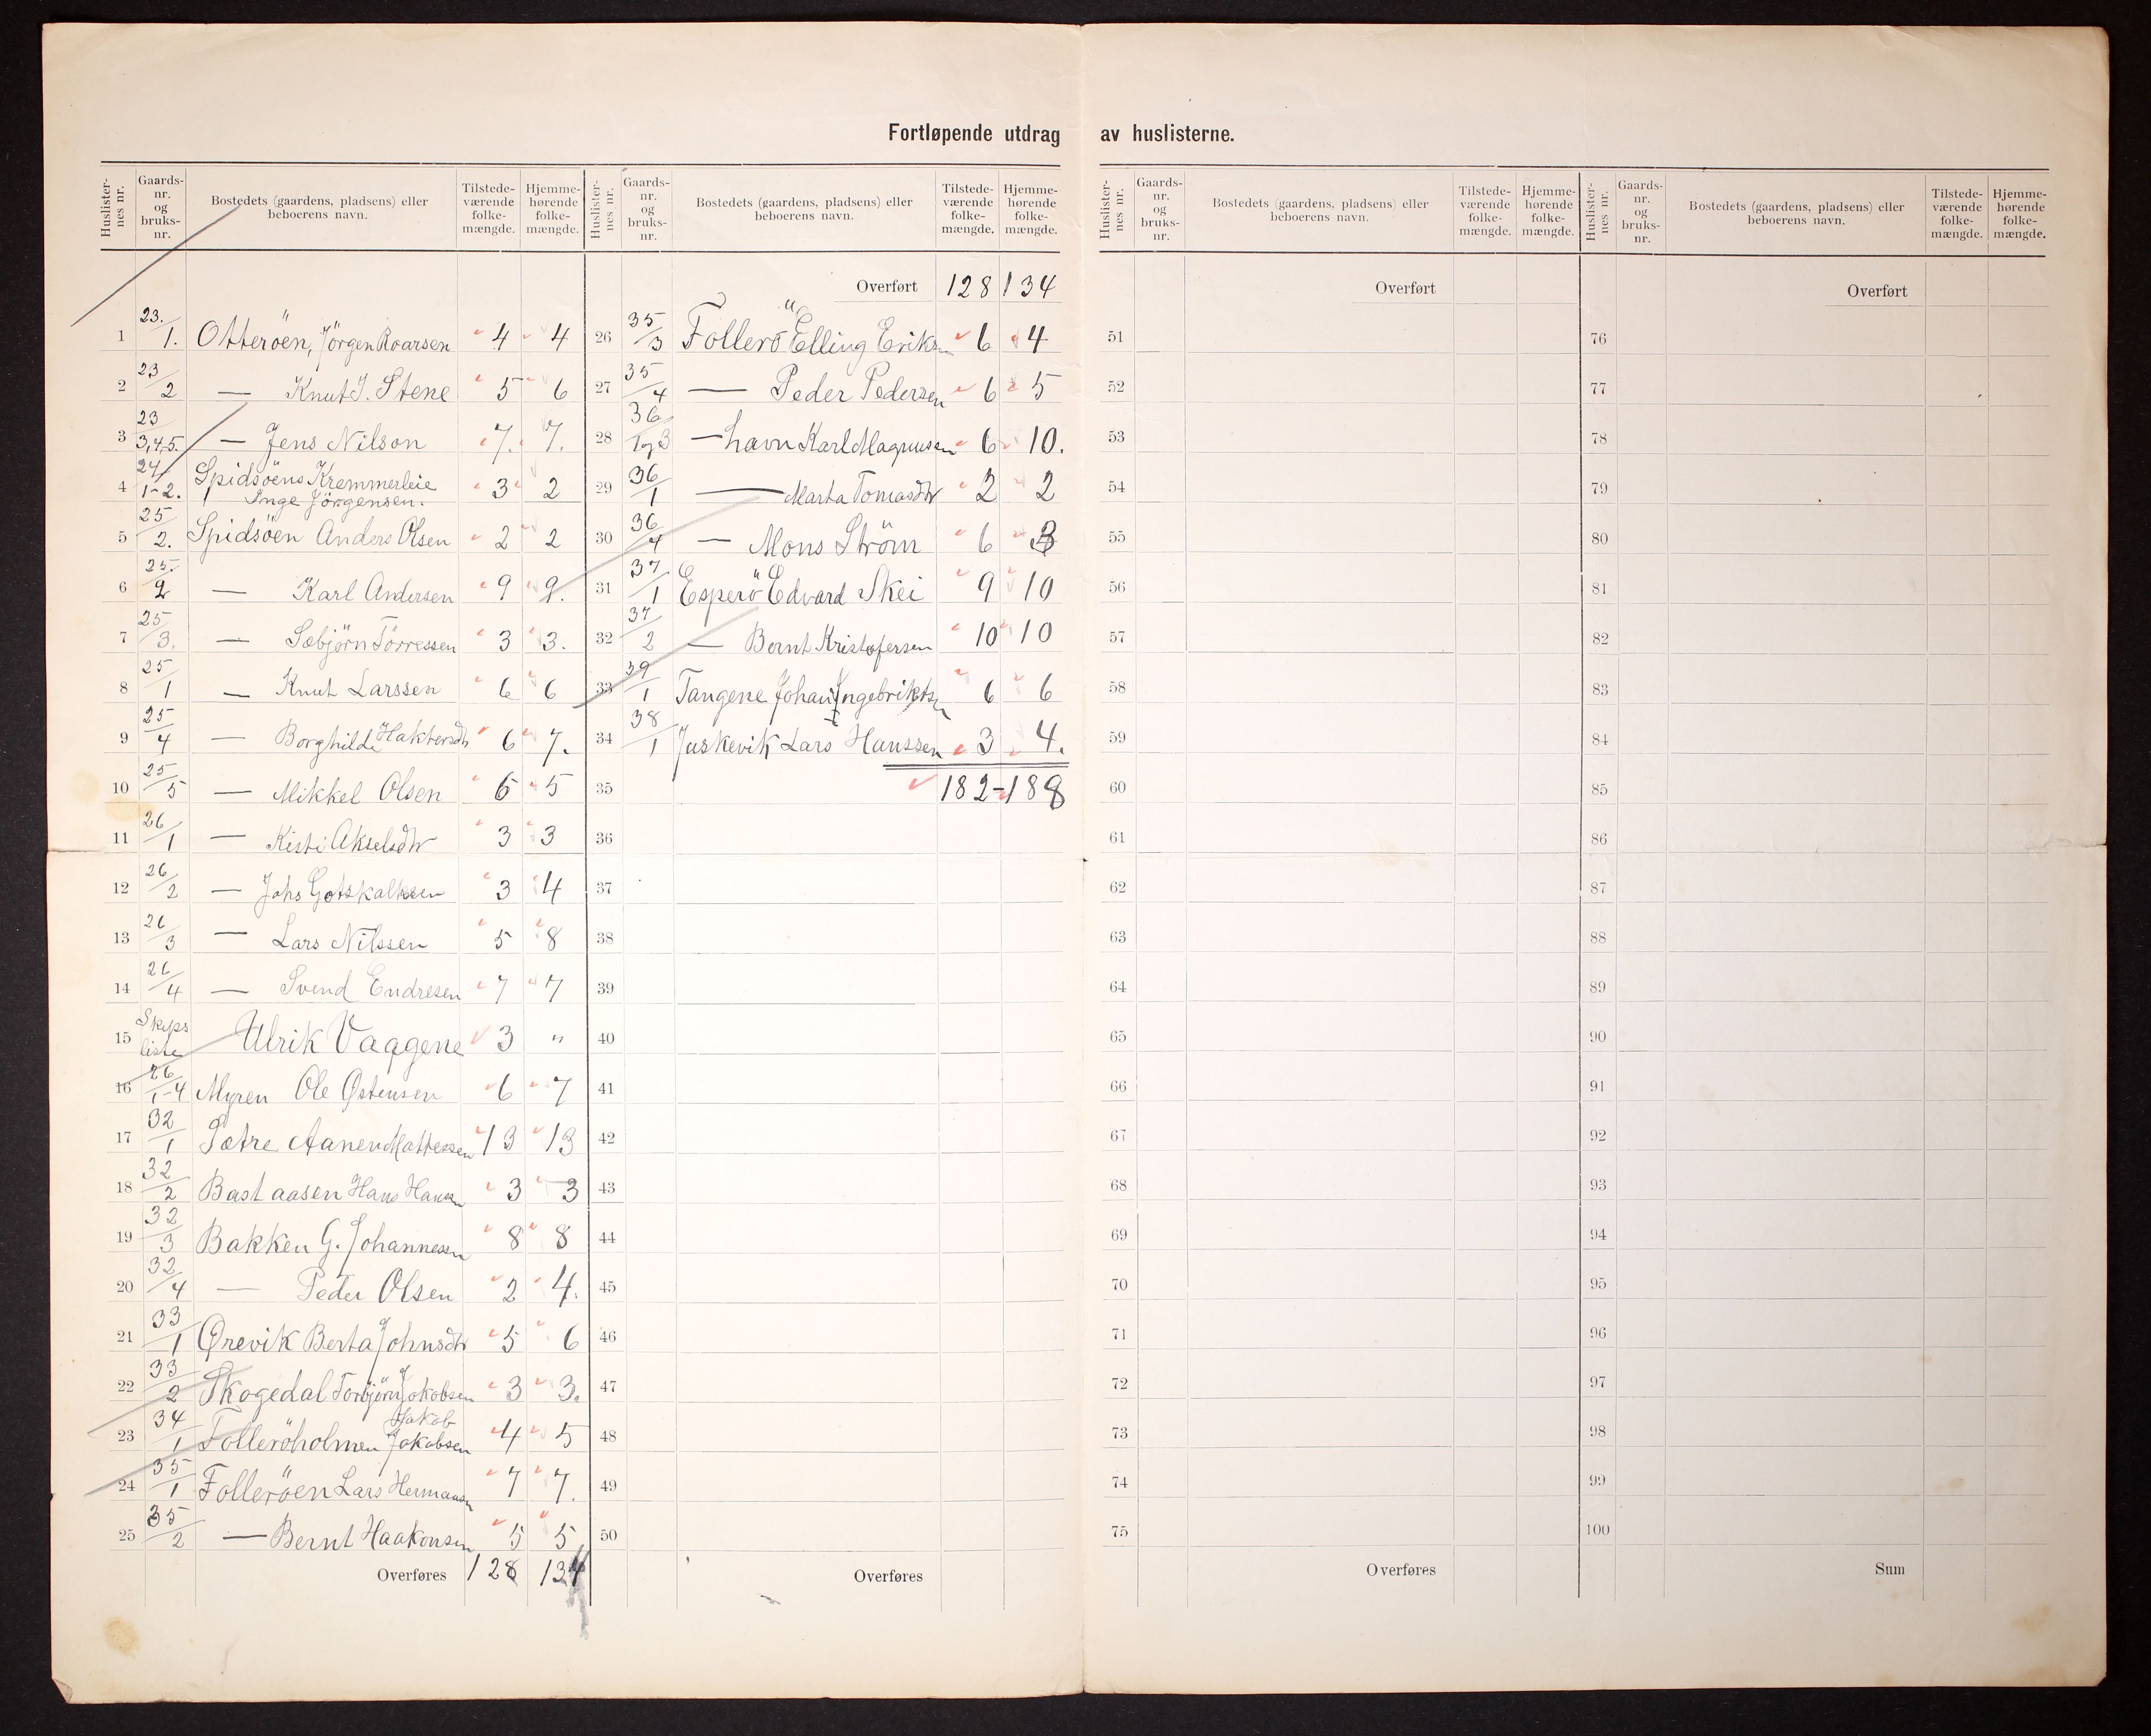 Fortløpende utdrag av huslisterne.
Huslister-nes nr. Gaards-nr. og bruks-nr. Bostedets (gaardens, pladsens) eller beboerens navn. Tilstede-værende folke-mængde. Hjemme-hørende folke-mængde.
1 23./1. Otteröen, Jörgen Roarsen 4 4
2 23/2 — Knut J. Stene 5 6
3 23/3,4,5. — Jens Nilson 7. 7.
4 24/1-2. Spidsöens Kremmerleie 3 2
Inge Jörgensen.
5 25/2. Spidsöen Anders Olsen 2 2
6 25./2 — Karl Andersen 9 9.
7 25/3. — Sæbjörn Törressen 3 3.
8 25/1 — Knut Larssen 6 6
9 25/4 — Borghilde 6 7.
10 25/5 — Mikkel Olsen 6 5
11 26/1 — Kisti Akselsdtr 3 3
12 26/2 — Johs Gotskalksen 3 4
13 26/3 — Lars Nilssen 5 8
14 26/4 — Svend Endresen 7 7
15 Skips liste Ulrik Vaagene 3 "
16 26/1-4 Myren Ole Østensen 6 7
17 32/1 Sætre Aanen Mattessen 13 13
18 32/2 Bastaasen Hans Hansen 3 3
19 32/3 Bakken G. Johannessen 8 8
20 32/4 — Peder Olsen 2 4.
21 33/1 Ørevik Berta Johnsdtr 5 6
22 33/2 Skogedal Torbjörn Jokobsen 3 3.
23 34/1 Folleröholmen Jakob Jakobsen 4 5
24 35/1 Folleröen Lars Hermansen 7 7.
25 35/2 — Bernt Haakonsen 5 5
Overføres 128 134
Huslister-nes nr. Gaards-nr. og bruks-nr. Bostedets (gaardens, pladsens) eller beboerens navn. Tilstede-værende folke-mængde. Hjemme-hørende folke-mængde.
Overført 128 134
26 35/3 Follerö Elling Eriksen 6 4
27 35/4 — Peder Pedersen 6 5
28 36/1og3 — havn Karl Magnussen 6 10.
29 36/1 — Marta Tomasdtr 2 2
30 36/4 — Mons Ström 6 3
31 37/1 Esperö Edvard Skei 9 10
32 37/2 — Bernt Kristofersen 10 10
33 39/1 Tangene Johan Ingebriktsen 6 6
34 38/1 Juskevik Lars Hanssen 3 4.
35 182-188
36
37
38
39
40
41
42
43
44
45
46
47
48
49
50
Overføres
Huslister-nes nr. Gaards-nr. og bruks-nr. Bostedets (gaardens, pladsens) eller beboerens navn. Tilstede-værende folke-mængde. Hjemme-hørende folke-mængde.
Overført
51
52
53
54
55
56
57
58
59
60
61
62
63
64
65
66
67
68
69
70
71
72
73
74
75
Overføres
Huslister-nes nr. Gaards-nr. og bruks-nr. Bostedets (gaardens, pladsens) eller beboerens navn. Tilstede-værende folke-mængde. Hjemme-hørende folke-mængde.
Overført
76
77
78
79
80
81
82
83
84
85
86
87
88
89
90
91
92
93
94
95
96
97
98
99
100
Sum